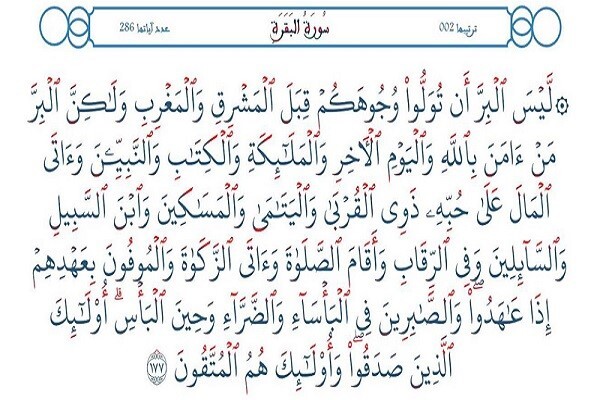 ترتيبها 002 سُورَةُ البَقَرَةِ عدد آياتها 286
۞ لَّيْسَ ٱلْبِرَّ أَن تُوَلُّوا۟ وُجُوهَكُمْ قِبَلَ ٱلْمَشْرِقِ وَٱلْمَغْرِبِ وَلَـٰكِنَّ ٱلْبِرَّ
مَنْ ءَامَنَ بِٱللَّهِ وَٱلْيَوْمِ ٱلْـَٔاخِرِ وَٱلْمَلَـٰٓئِكَةِ وَٱلْكِتَـٰبِ وَٱلنَّبِيِّـۧنَ وَءَاتَى
ٱلْمَالَ عَلَىٰ حُبِّهِۦ ذَوِى ٱلْقُرْبَىٰ وَٱلْيَتَـٰمَىٰ وَٱلْمَسَـٰكِينَ وَٱبْنَ ٱلسَّبِيلِ
وَٱلسَّآئِلِينَ وَفِى ٱلرِّقَابِ وَأَقَامَ ٱلصَّلَوٰةَ وَءَاتَى ٱلزَّكَوٰةَ وَٱلْمُوفُونَ بِعَهْدِهِمْ
إِذَا عَـٰهَدُوا۟ ۖ وَٱلصَّـٰبِرِينَ فِى ٱلْبَأْسَآءِ وَٱلضَّرَّآءِ وَحِينَ ٱلْبَأْسِ ۗ أُو۟لَـٰٓئِكَ
ٱلَّذِينَ صَدَقُوا۟ ۖ وَأُو۟لَـٰٓئِكَ هُمُ ٱلْمُتَّقُونَ ١٧٧